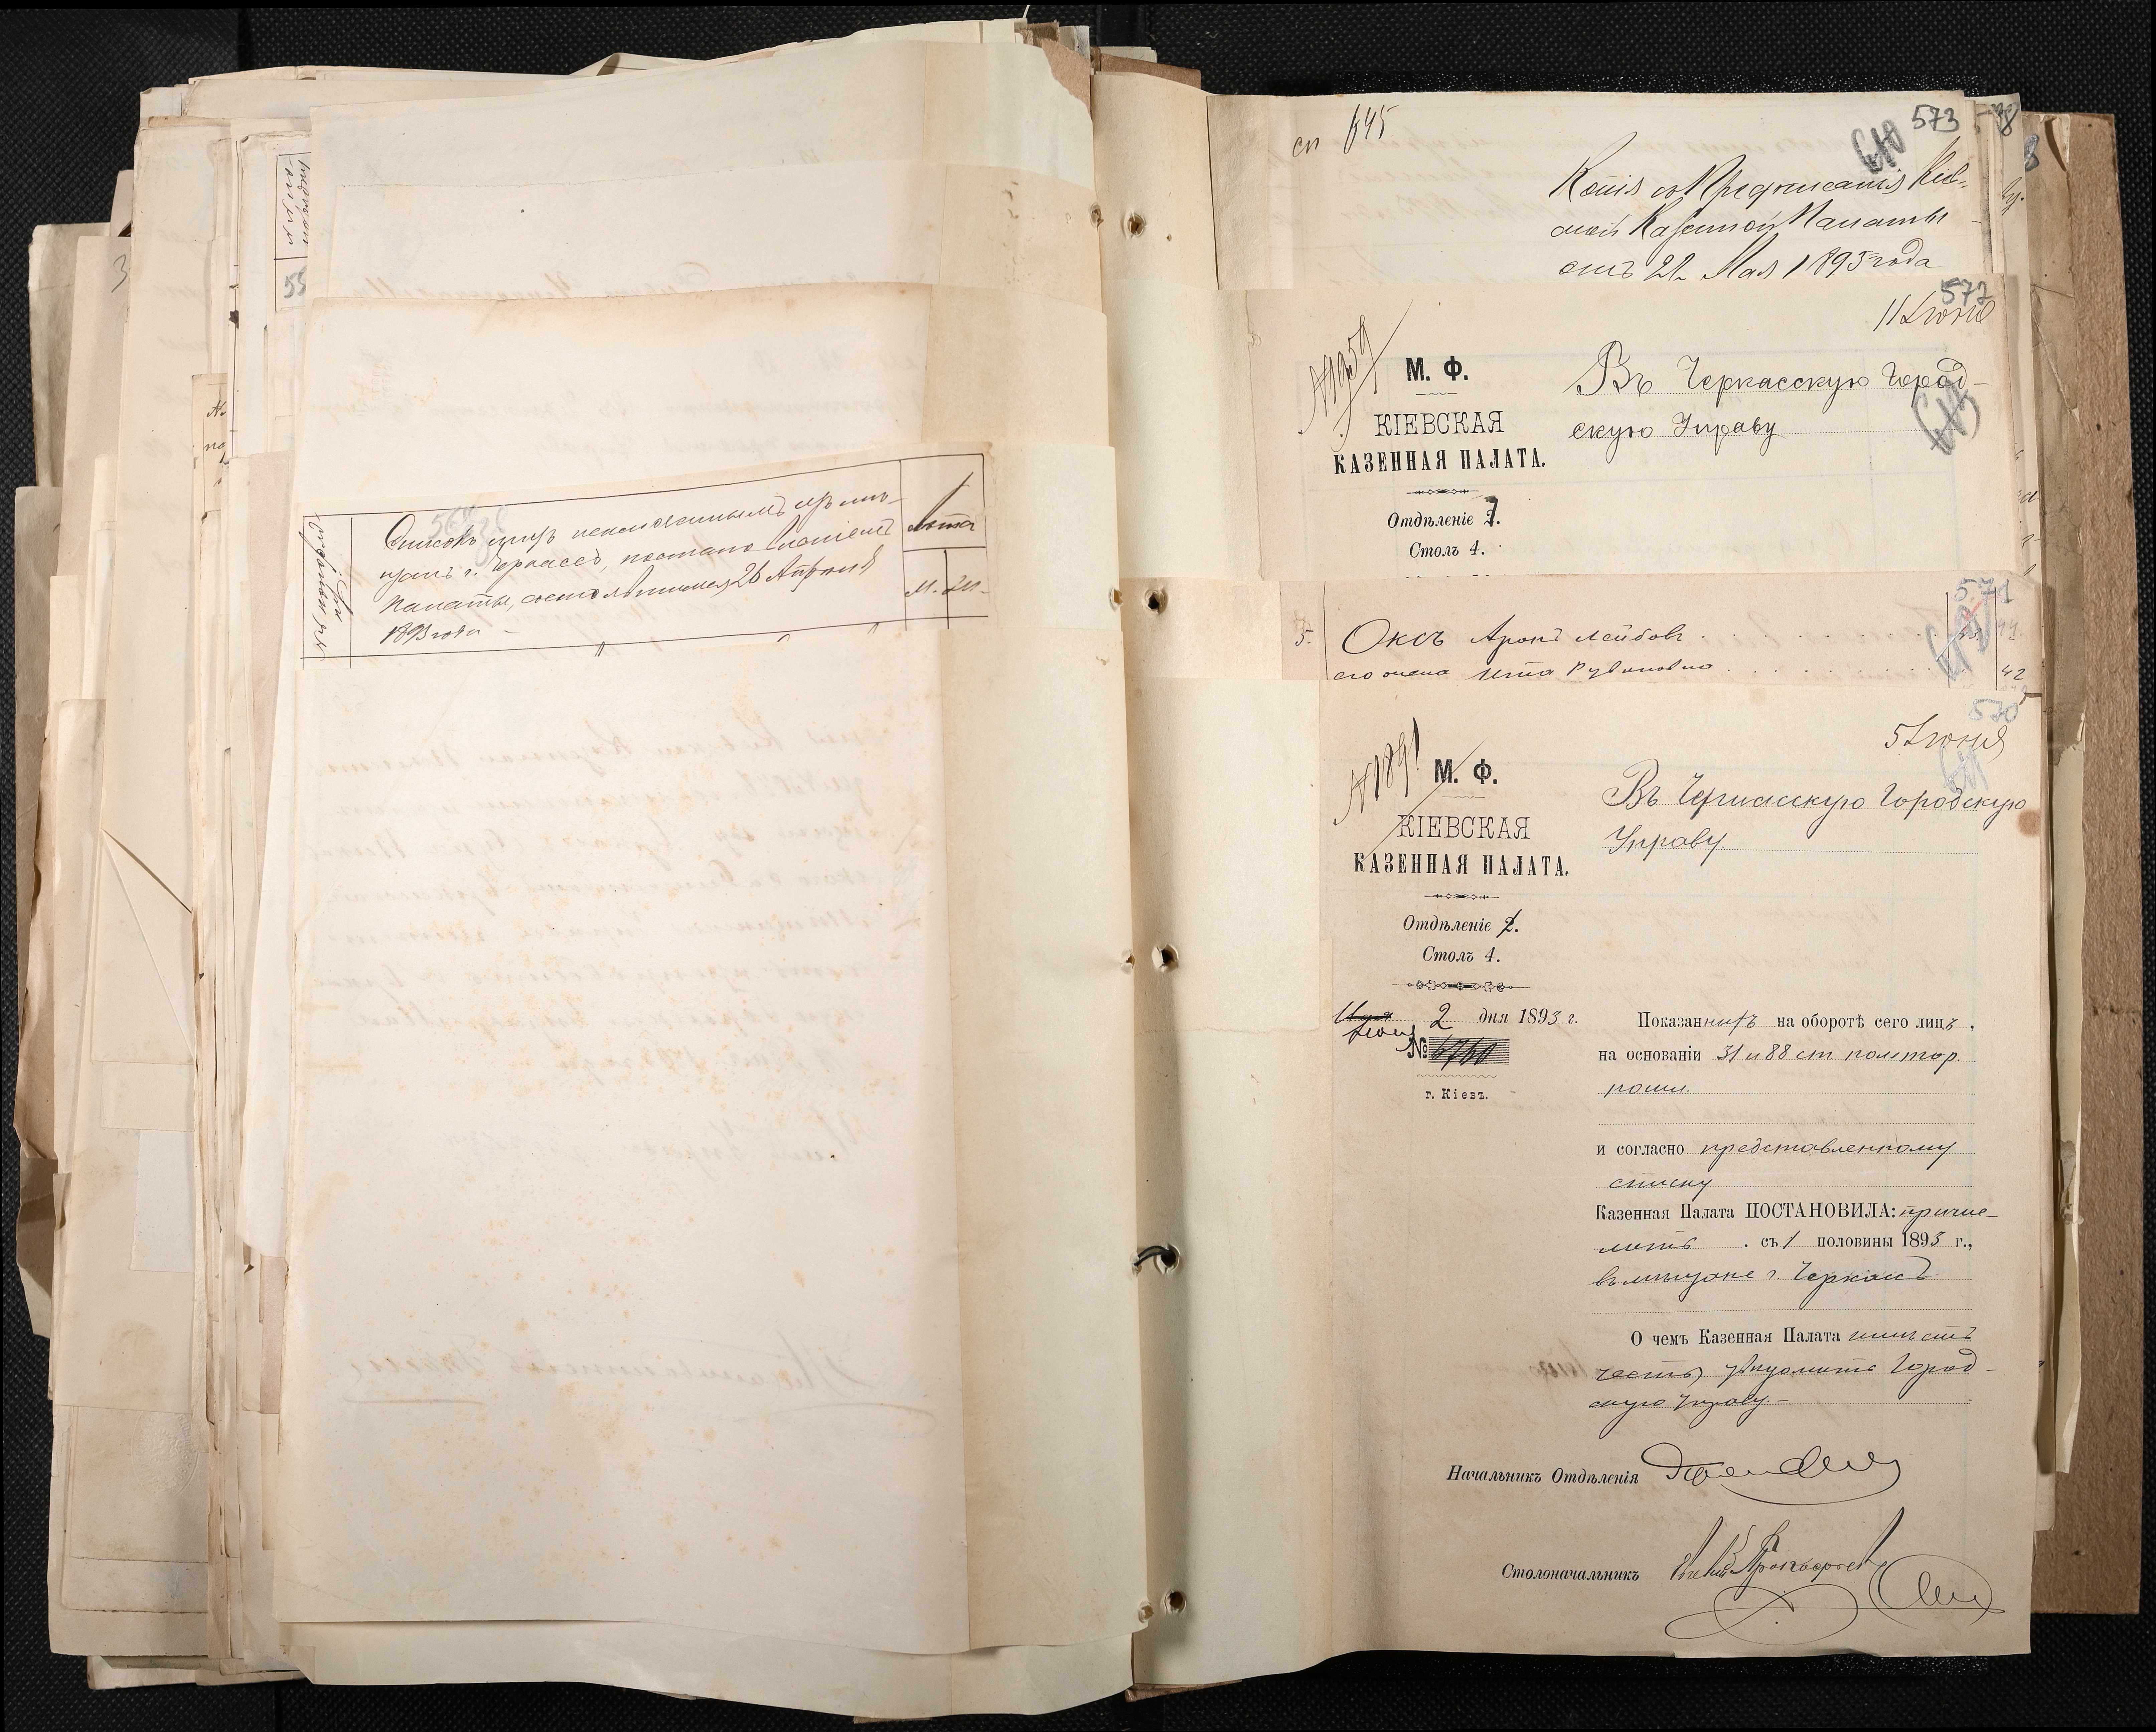 Списокъ лицъ исключеннымъ изъ мѣ-
щанъ г. Черкассъ, постановленіемъ
Палаты, состоявшимся 26 Апрѣля
1893 года –
Лѣта
М.
55
сп 645
573
Копія съ Предписанія Кіев-
ской Казенной Палаты
отъ 21 Мая 1893 года
572
11 Іюня
№ 1959
М. Ф.
КІЕВСКАЯ
КАЗЕННАЯ ПАЛАТА.
Отдѣленіе 1.
Столъ 4.
Въ Черкасскую Город-
скую Управу
571
5. Оксъ Аронъ Лейбовъ
его жена Ита Рувиновна 42
570
5 Іюня
№ 1891
М. Ф.
КІЕВСКАЯ
КАЗЕННАЯ ПАЛАТА.
Отдѣленіе 2.
Столъ 4.
Іюня 2 дня 1893 г.
№ 6760
г. Кіевъ.
Въ Черкасскую Городскую
Управу.
Показанныхъ на оборотѣ сего лицъ,
на основаніи 31 и 88 ст пол о тор.
пошл.
и согласно представленному
списку
Казенная Палата ПОСТАНОВИЛА: причис-
лить съ 1 половины 1893 г.,
въ мѣщане г. Черкассъ
О чемъ Казенная Палата имѣетъ
честь увѣдомить Город-
скую Управу. –
Начальникъ Отдѣленія
Столоначальникъ